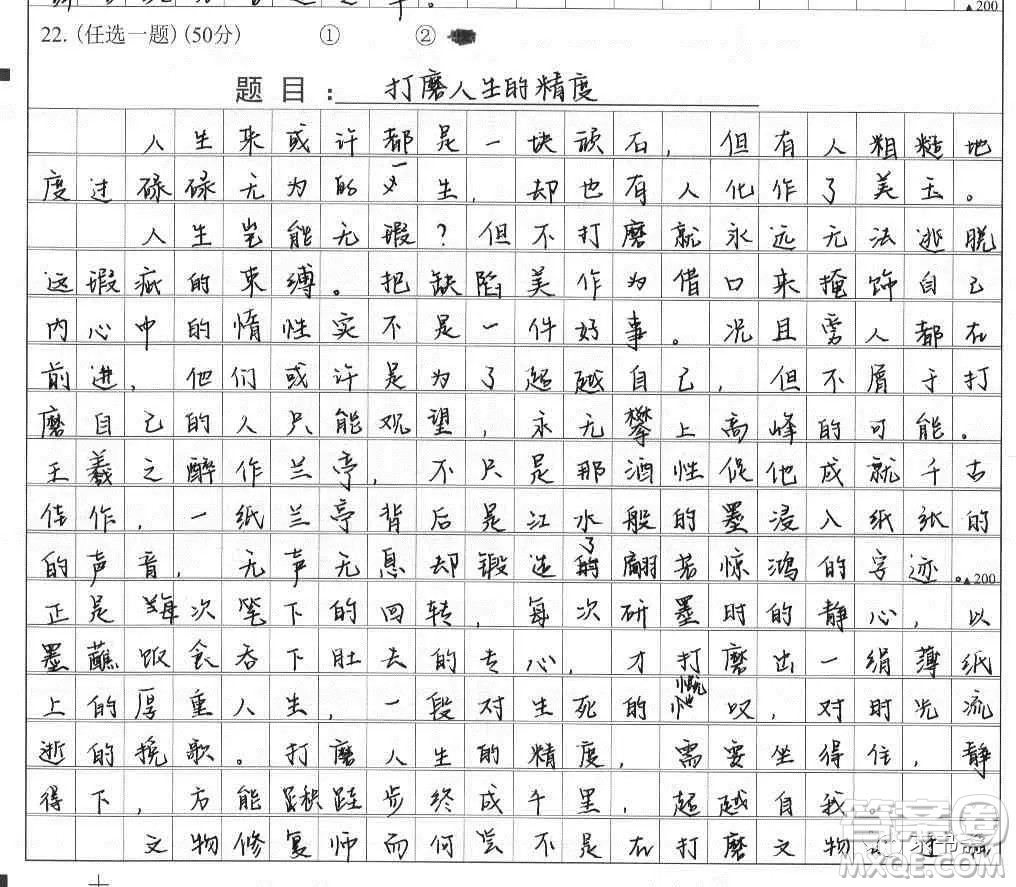 ▲200
22.(任选一题)(50分) ① ②
题目：打磨人生的精度
人生来或许都是一块顽石，但有人粗糙地
度过碌碌无为的一生，却也有人化作了美玉。
人生岂能无瑕？但不打磨就永远无法逃脱
这瑕疵的束缚。把缺陷美作为借口来掩饰自己
内心中的惰性实不是一件好事。况且旁人都在
前进，他们或许是为了超越自己，但不屑于打
磨自己的人只能观望，永无攀上高峰的可能。
王羲之醉作兰亭，不只是那酒性促他成就千古
佳作，一纸兰亭背后是江水般的墨浸入纸张的
的声音，无声无息却锻造了翩若惊鸿的字迹。▲200
正是每次笔下的回转，每次研墨时的静心，以
墨蘸饭食吞下肚去的专心，才打磨出一绢薄纸
上的厚重人生，一段对生死的慨叹，对时光流
逝的挽歌。打磨人生的精度，需要坐得住，静
得下，方能跬步终成千里，超越自我。
文物修复师而何尝不是在打磨文物
答案圈
MXQE.COM